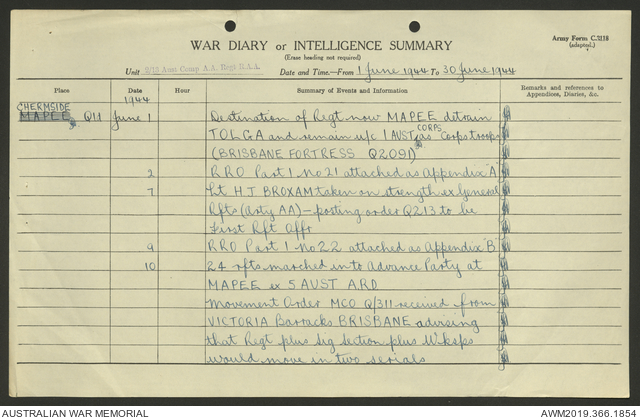 WAR DIARY or INTELLIGENCE SUMMARY
Army Form C.2118
(adapted.)
(Erase heading not required)
Unit 2/12 Aust Comp A.A. Regt R.A.A.
Date and Time.—From 1 June 1944 To 30 June 1944
Place Date Hour Summary of Events and Information Remarks and references to Appendices, Diaries, &c.
1944
CHERMSIDE
MAPEE Q11 June 1 Destination of Regt now MAPEE detrain
TOLGA and remain u/c 1 AUST CORPS as Corps troops
(BRISBANE FORTRESS Q2091)
2 RRO Part 1 No 21 attached as Appendix A
7 Lt H J BROXAM taken on strength ex General
Rfts (Arty AA) - posting order Q213 to be
First Rft Offr
9 RRO Part 1 No 22 attached as Appendix B
10 24 rfts marched in to Advance Party at
MAPEE ex 5 AUST ARD
Movement Order MCO Q/311 received from
VICTORIA Barracks BRISBANE advising
that Regt plus Sig Section plus Wksps
would move in two serials
AUSTRALIAN WAR MEMORIAL
AWM2019.366.1854